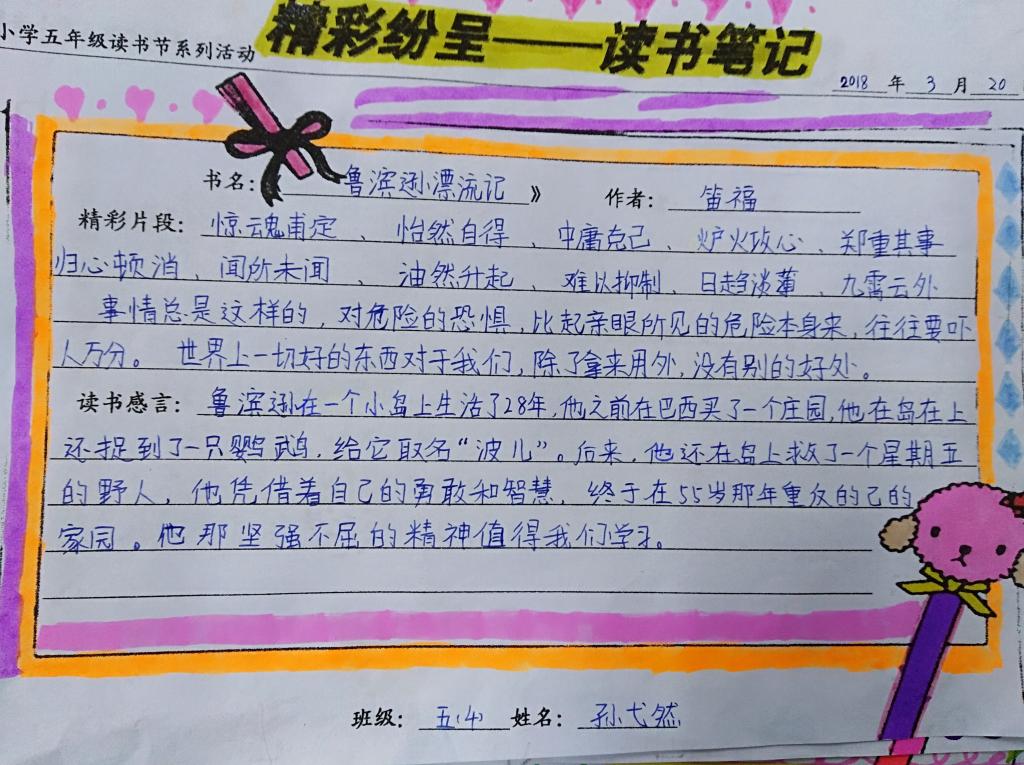 小学五年级读书节系列活动
精彩纷呈——读书笔记
2018 年 3 月 20
书名： 鲁滨逊漂流记 》 作者： 笛福
精彩片段： 惊魂甫定 、 怡然自得 、 中庸克己 、 炉火攻心 、 郑重其事
归心顿消 、 闻所未闻 、 油然升起 、 难以抑制 、 日趋淡薄 、 九霄云外
事情总是这样的，对危险的恐惧，比起亲眼所见的危险本身来，往往要吓
人万分。 世界上一切好的东西对于我们，除了拿来用外，没有别的好处。
读书感言： 鲁滨逊在一个小岛上生活了28年，他之前在巴西买了一个庄园，他在岛在上
还捉到了一只鹦鹉，给它取名“波儿”。后来，他还在岛上救了一个星期五
的野人，他凭借着自己的勇敢和智慧，终于在55岁那年重反的己的
家园。他那坚强不屈的精神值得我们学习。
班级： 五(4) 姓名： 孙弋然